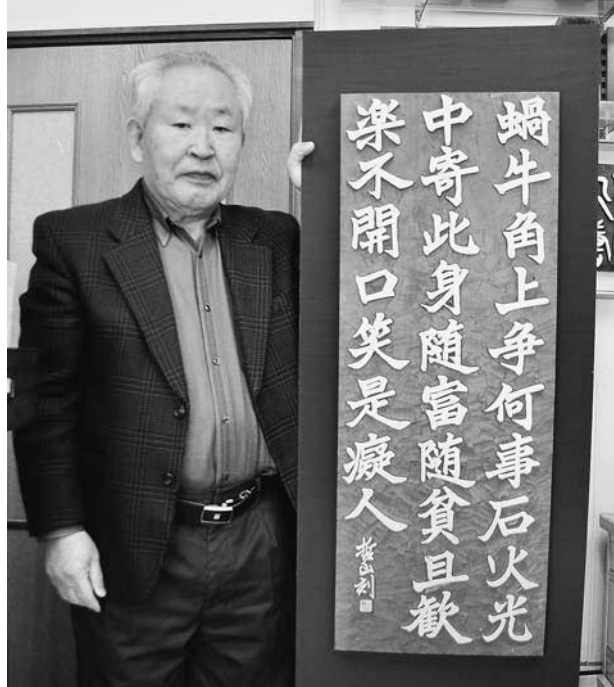 蝸牛角上争何事石火光
中寄此身随富随貧且歓
楽不開口笑是癡人
哲山刻